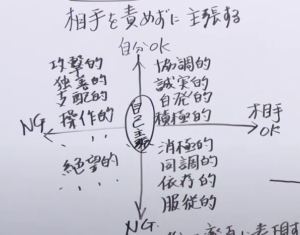 相手を責めずに主張する
自分OK
攻撃的
独善的
支配的
操作的
・・・
協調的
誠実的
自発的
積極的
NG
自己主張
相手
OK
絶望的
・・・・
消極的
同調的
依存的
服従的
NG